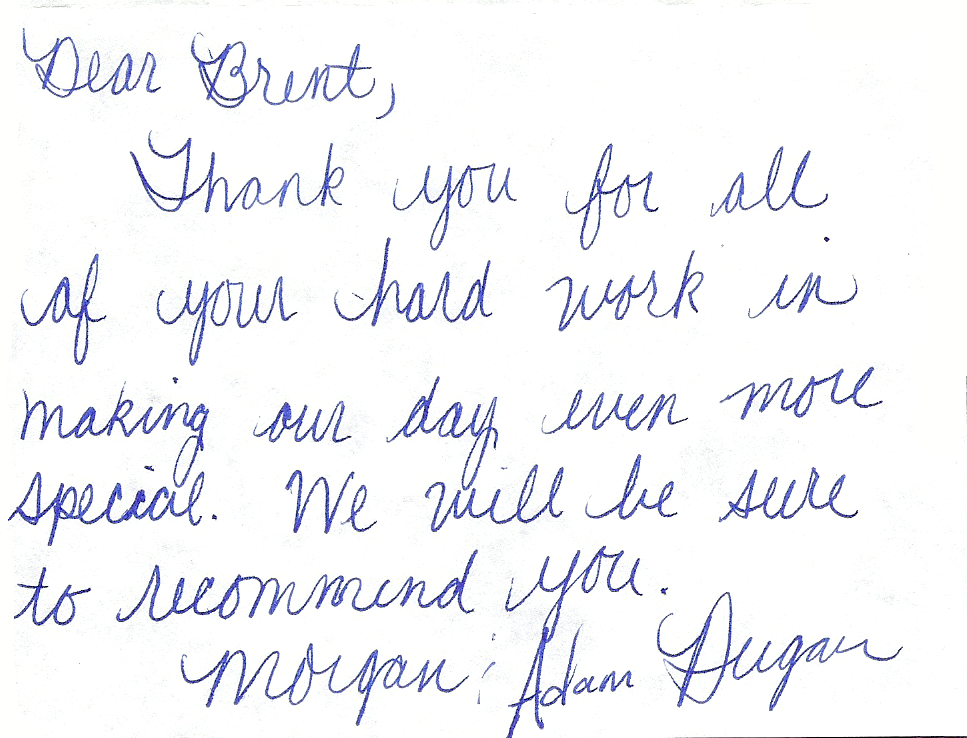 Dear Brent,
Thank you for all
of your hard work in
making our day even more
special. We will be sure
to recommend you.
Morgan : Adam Dugan